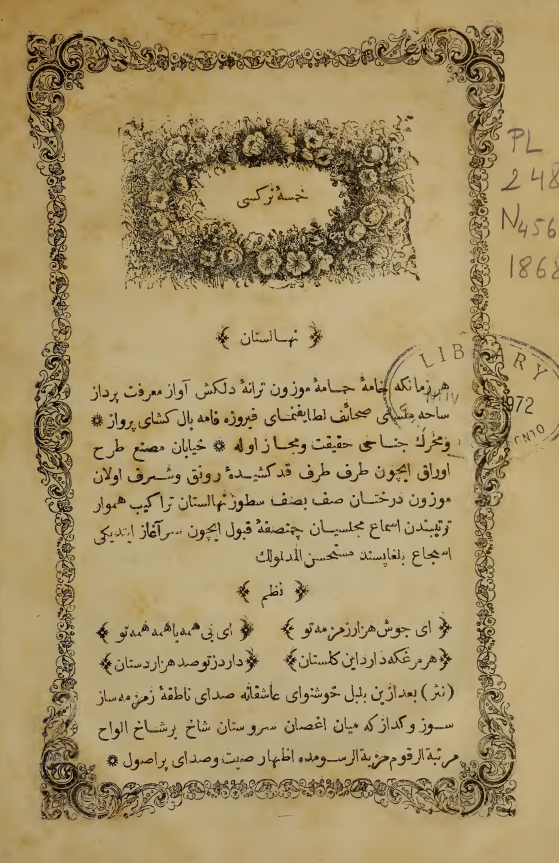 خمسهٔ نركسی
PL
248
N456
1868
نهالستان
LIBRARY
1972
هر زمانكه خامهٔ حمامهٔ موزون ترانهٔ دلكش آواز معرفت پرداز
ساحه صحائف لطایفنمای فیروزه فامه بال كشای پرواز *
ومحرك جناحی حقیقت ومجاز اوله * خیابان مصنع طرح
اوراق ایچون طرف طرف قد كشیدهٔ رونق وشرف اولان
موزون درختان صف بصف سطوز نهالستان تراكیب هموار
ترتیبندن اسماع مجلسیان چمنصفهٔ قبول ایچون سرآغاز ایتدیكی
اسجاع بلغاپسند مستحسن المدلولك
نظم
ای جوش هزار زمزمه تو ای بی همه با همه همه تو
هر مرغكه دارد این كلستان دارد ز تو صد هزار دستان
(نثر) بعد ازین بلبل خوشنوای عاشقانه صدای ناطقهٔ زمزمه ساز
سوز وكداز كه میان اغصان سروستان شاخ برشاخ الواح
مرتبة الرقوم مزیة الرسومده اظهار صیت وصدای پراصول *